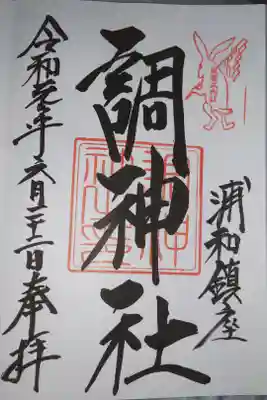 浦和鎮座
調神社
令和元年六月二十二日奉拝